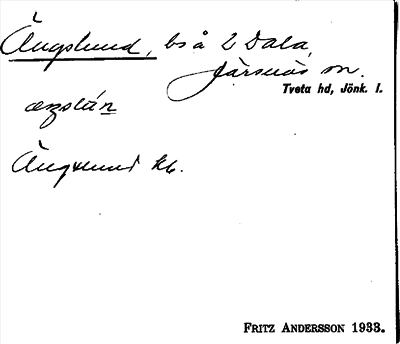 Ängslund, bs å 2 Dala,
Järsnäs sn.
Tveta hd, Jönk. l.
Änglund kb.
FRITZ ANDERSSON 1933.